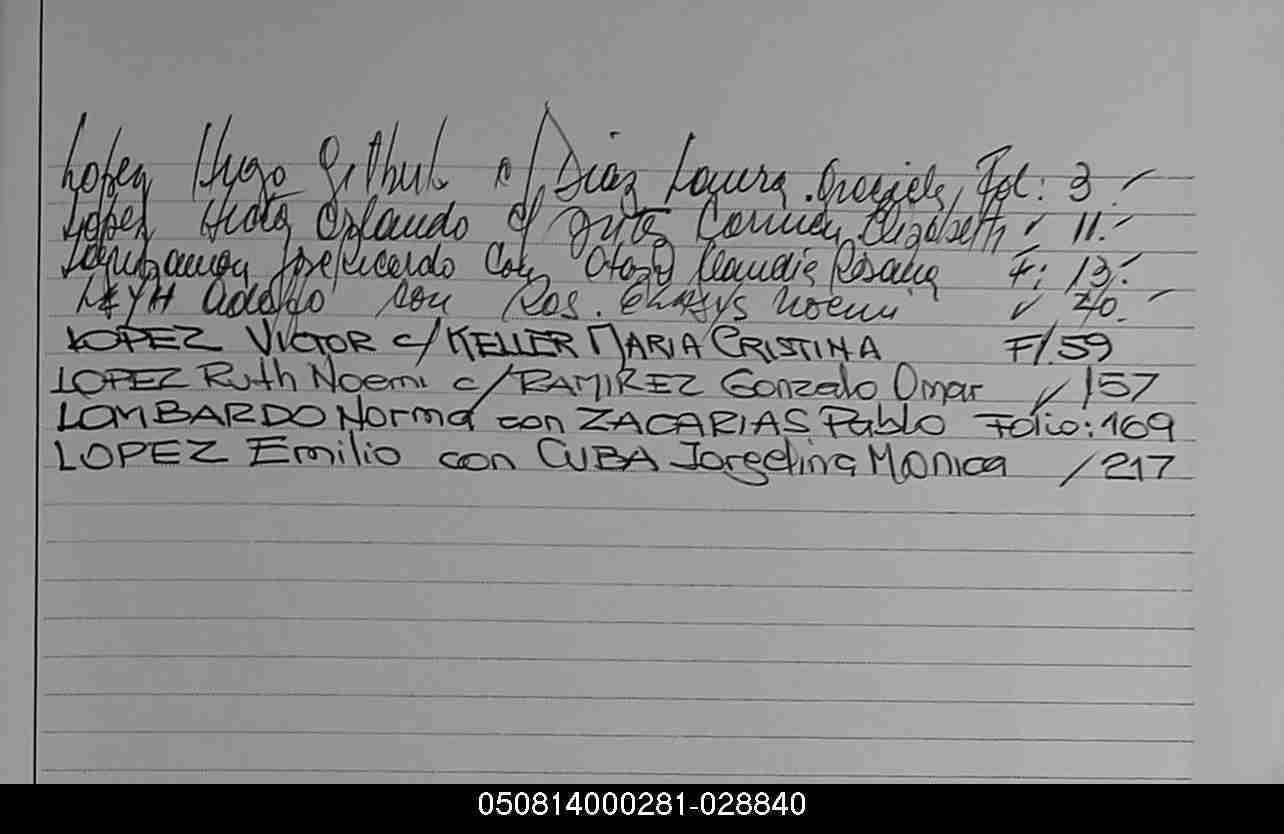 Lopez Hugo c/ Diaz Laura Graciela, Fol: 3
Lopez Orlando c/ Carmen Elizabeth 11.-
Jose Ricardo Con Claudia Rosana F: 13.-
Adolfo con Ros. Gladys Noemi 40.
LOPEZ VICTOR c/ KELLER MARIA CRISTINA F/.59
LOPEZ Ruth Noemi c/ RAMIREZ Gonzalo Omar 157
LOMBARDO Norma con ZACARIAS Pablo Folio: 169
LOPEZ Emilio con CUBA Jorgelina Monica / 217
050814000281-028840